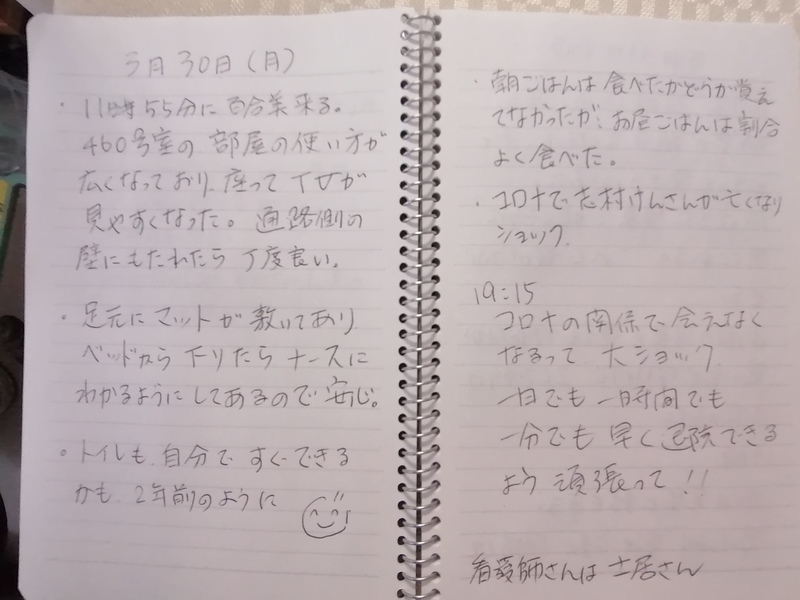 3月30日(月)
・11時55分に百合美来る。
460号室の部屋の使い方が
広くなっており、座ってTVが
見やすくなった。通路側の
壁にもたれたら丁度良い。
・足元にマットが敷いてあり
ベッドから下りたらナースに
わかるようにしてあるので安心。
・トイレも、自分ですぐできる
かも、2年前のように
・朝ごはんは食べたかどうか覚え
てなかったが、お昼ごはんは割合
よく食べた。
・コロナで志村けんさんが亡くなり
ショック。
19:15
コロナの関係で会えなく
なるって大ショック
一日でも一時間でも
一分でも早く退院できる
よう頑張って!!
看護師さんは土居さん